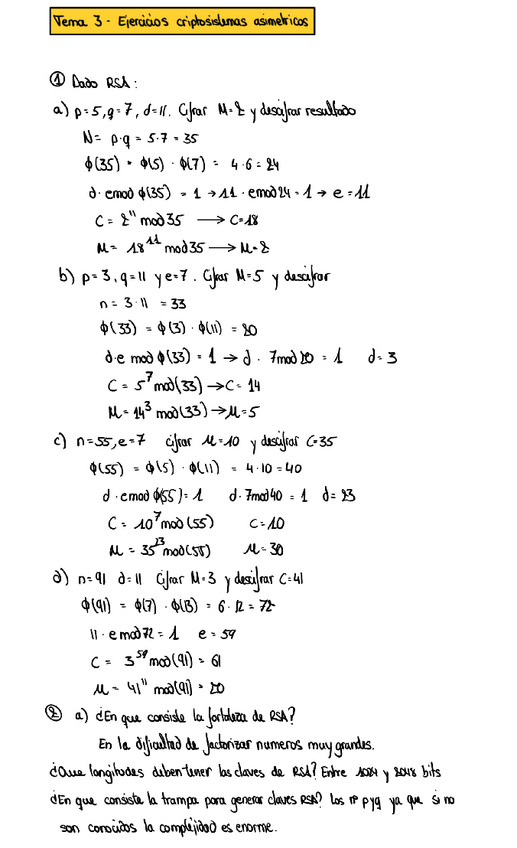 Tema 3 - Ejercicios criptosistemas asimetricos
① Dado RSA:
a) p=5, q=7, d=11. Cifrar M=2 y descifrar resultado
N= p·q = 5·7 = 35
ϕ(35) = ϕ(5) · ϕ(7) = 4·6 = 24
d·e mod ϕ(35) = 1 → 11·e mod 24 = 1 → e = 11
C = 2¹¹ mod 35 → C=18
M = 18¹¹ mod 35 → M=2
b) p=3, q=11 y e=7. Cifrar M=5 y descifrar
n = 3·11 = 33
ϕ(33) = ϕ(3) · ϕ(11) = 20
d·e mod ϕ(33) = 1 → d · 7 mod 20 = 1 d=3
C = 5⁷ mod(33) → C= 14
M = 14³ mod(33) → M=5
c) n=55, e=7 cifrar M=10 y descifrar C=35
ϕ(55) = ϕ(5) · ϕ(11) = 4·10 = 40
d·e mod ϕ(55) = 1 d·7 mod 40 = 1 d= 23
C = 10⁷ mod (55) C=10
M = 35²³ mod(55) M=30
d) n=91 d=11 Cifrar M=3 y descifrar C=41
ϕ(91) = ϕ(7) · ϕ(13) = 6·12 = 72
11·e mod 72 = 1 e = 59
C = 3⁵⁹ mod(91) = 61
M = 41¹¹ mod(91) = 20
② a) ¿En que consiste la fortaleza de RSA?
En la dificultad de factorizar numeros muy grandes.
¿Que longitudes deben tener las claves de RSA? Entre 1024 y 2048 bits
¿En que consiste la trampa para generar claves RSA? Los nº p y q ya que si no
son conocidos la complejidad es enorme.